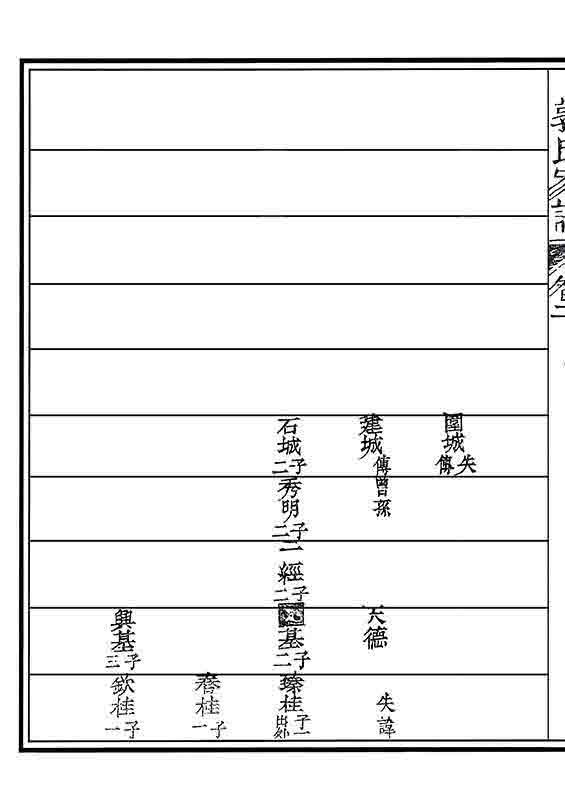 郭氏家譜 卷二
圍城 失傳
建城 傳曾孫 天德 失諱
石城 子二 秀明 子二 一經 子二 基 子二 瑧桂 子一 出外
春桂 子一
興基 子三 欽桂 子一